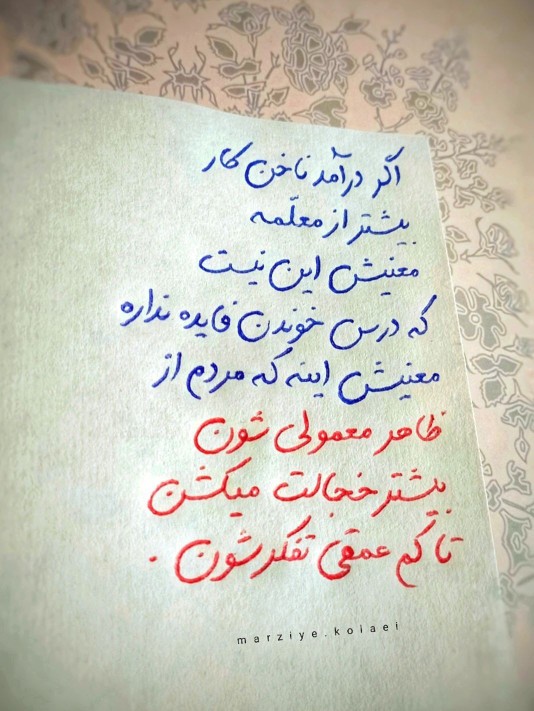 اگر درآمد ناخن کار
بیشتر از معلّمه
معنیش این نیست
که درس خوندن فایده نداره
معنیش اینه که مردم از
ظاهر معمولی شون
بیشتر خجالت میکشن
تا کم عمقی تفکرشون .
marziye.koiaei